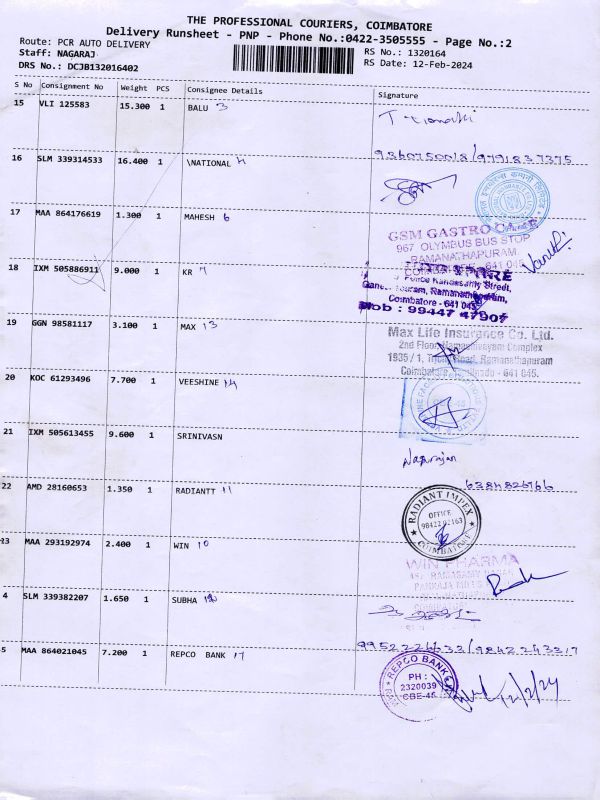 THE PROFESSIONAL COURIERS, COIMBATORE
Delivery Runsheet - PNP - Phone No.:0422-3505555 - Page No.:2
Route: PCR AUTO DELIVERY
RS No.: 1320164
Staff: NAGARAJ
RS Date: 12-Feb-2024
DRS No.: DCJB132016402
S No Consignment No Weight PCS Consignee Details Signature
15 VLI 125583 15.300 1 BALU 3
9360750018/9791837375
16 SLM 339314533 16.400 1 \NATIONAL 4
17 MAA 864176619 1.300 1 MAHESH 6
GSM GASTRO
967 OLYMBUS BUS STOP
RAMANATHAPURAM
641 045
18 IXM 505886911 9.000 1 KR 7
Coimbatore - 641 045
Mob : 99447 47907
19 GGN 98581117 3.100 1 MAX 13
Max Life Insurance Co. Ltd.
2nd Floor, Hamsahivayam Complex
1935 / 1, Road, Ramanathapuram
641 045.
20 KOC 61293496 7.700 1 VEESHINE 14
21 IXM 505613455 9.600 1 SRINIVASN
Nagarajan
6384826766
22 AMD 28160653 1.350 1 RADIANTT 11
RADIANT IMPEX
OFFICE
COIMBATORE
23 MAA 293192974 2.400 1 WIN 10
WIN PHARMA
4 SLM 339382207 1.650 1 SUBHA
5 MAA 864021045 7.200 1 REPCO BANK 17
9952226633/9842243317
REPCO BANK
PH :
2320039
CBE-45
12/2/24